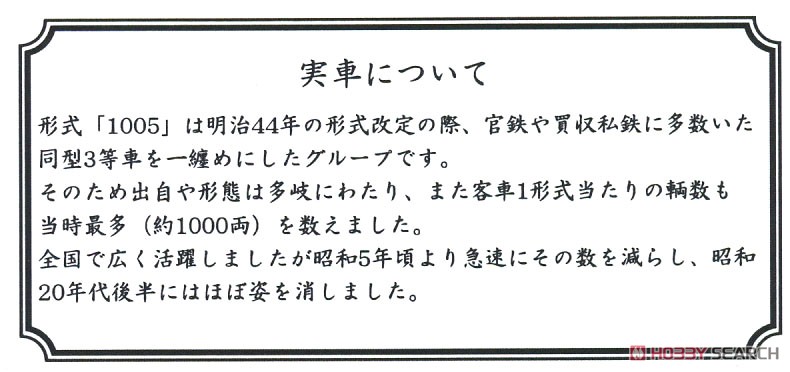 実車について
形式「1005」は明治44年の形式改定の際、官鉄や買収私鉄に多数いた
同型3等車を一纏めにしたグループです。
そのため出自や形態は多岐にわたり、また客車1形式当たりの輌数も
当時最多（約1000両）を数えました。
全国で広く活躍しましたが昭和5年頃より急速にその数を減らし、昭和
20年代後半にはほぼ姿を消しました。
HOBBY SEARCH